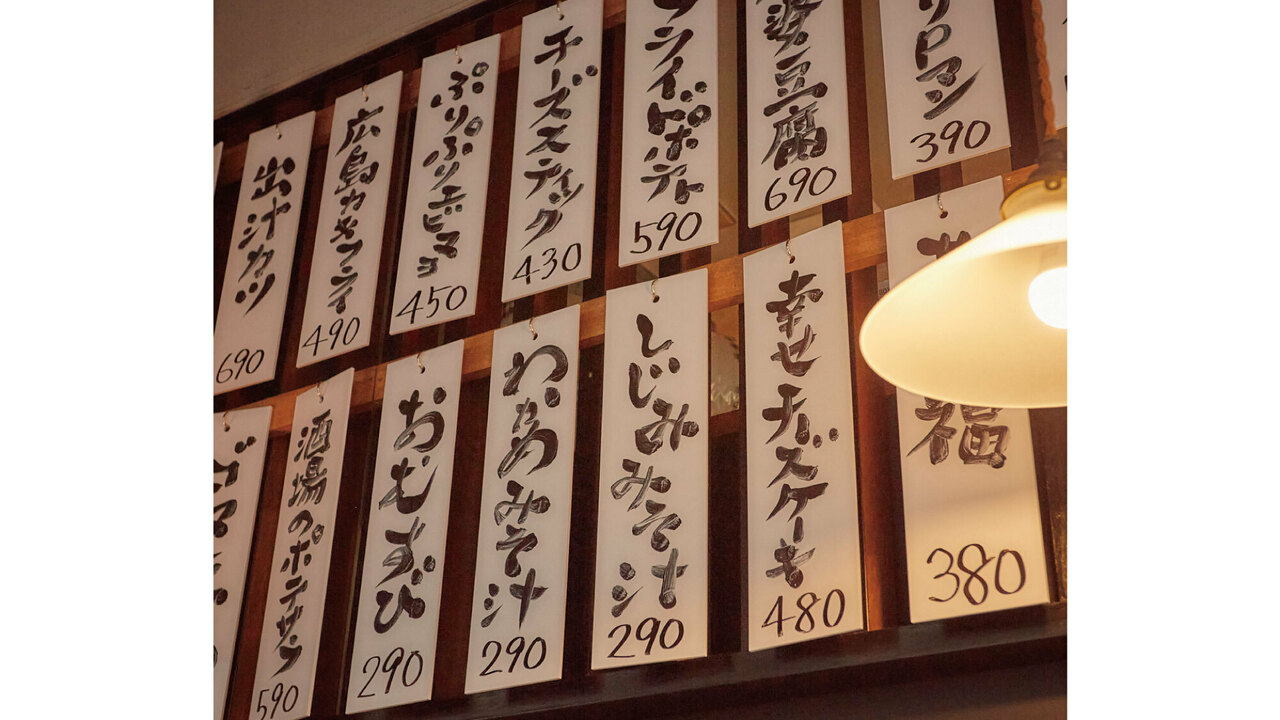 リPマン
390
婆豆腐
690
フライドポテト
590
チーズスティック
430
ぷりぷりエビマヨ
450
広島カキフライ
490
出汁カツ
690
福
380
幸せチーズケーキ
480
しじみみそ汁
290
わかめみそ汁
290
おむすび
290
酒場のポテサラ
590